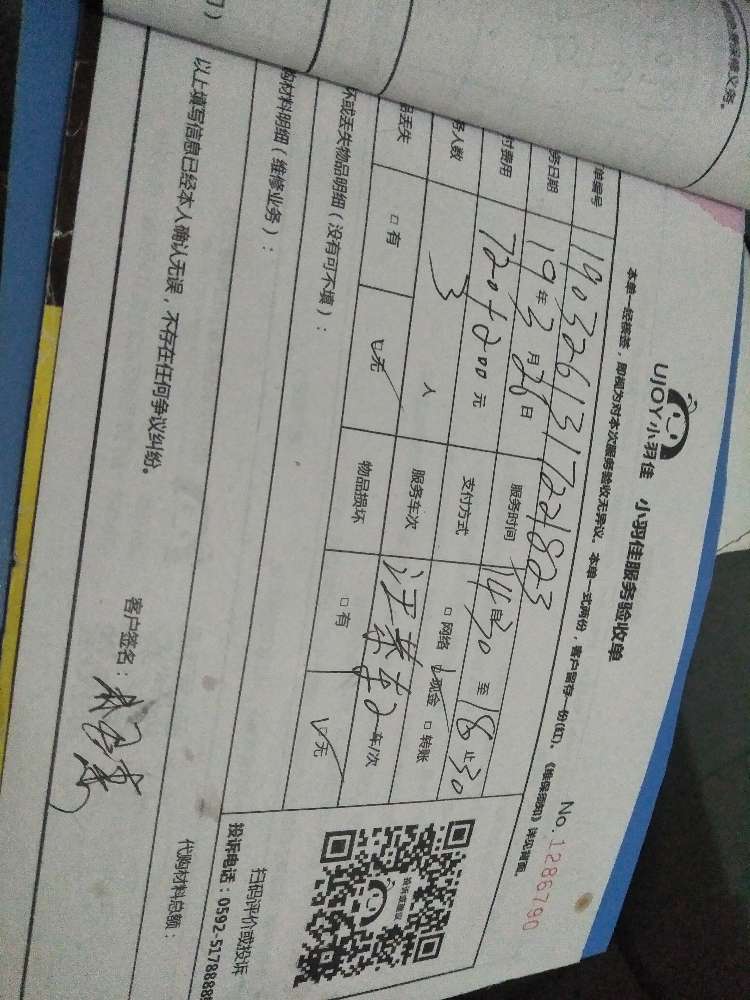 UJOY小羽佳 小羽佳服务验收单
No.1286790
本单一经核签，即视为对本次服务验收无异议。本单一式两份，客户留存一份(红)。《维保须知》详见背面。
单编号 190326131721823
务日期 19年3月26日 服务时间 自14:30至18:30止
付费用 720+200元 支付方式 □网络 ☑现金 □转账
务人数 3人 服务车次 2车/次
品丢失 □有 ☑无 物品损坏 □有 ☑无
坏或丢失物品明细（没有可不填）：
购材料明细（维修业务）：
扫码评价或投诉
投诉电话：0592-5178888
代购材料总额：
以上填写信息已经本人确认无误，不存在任何争议纠纷。
客户签名：